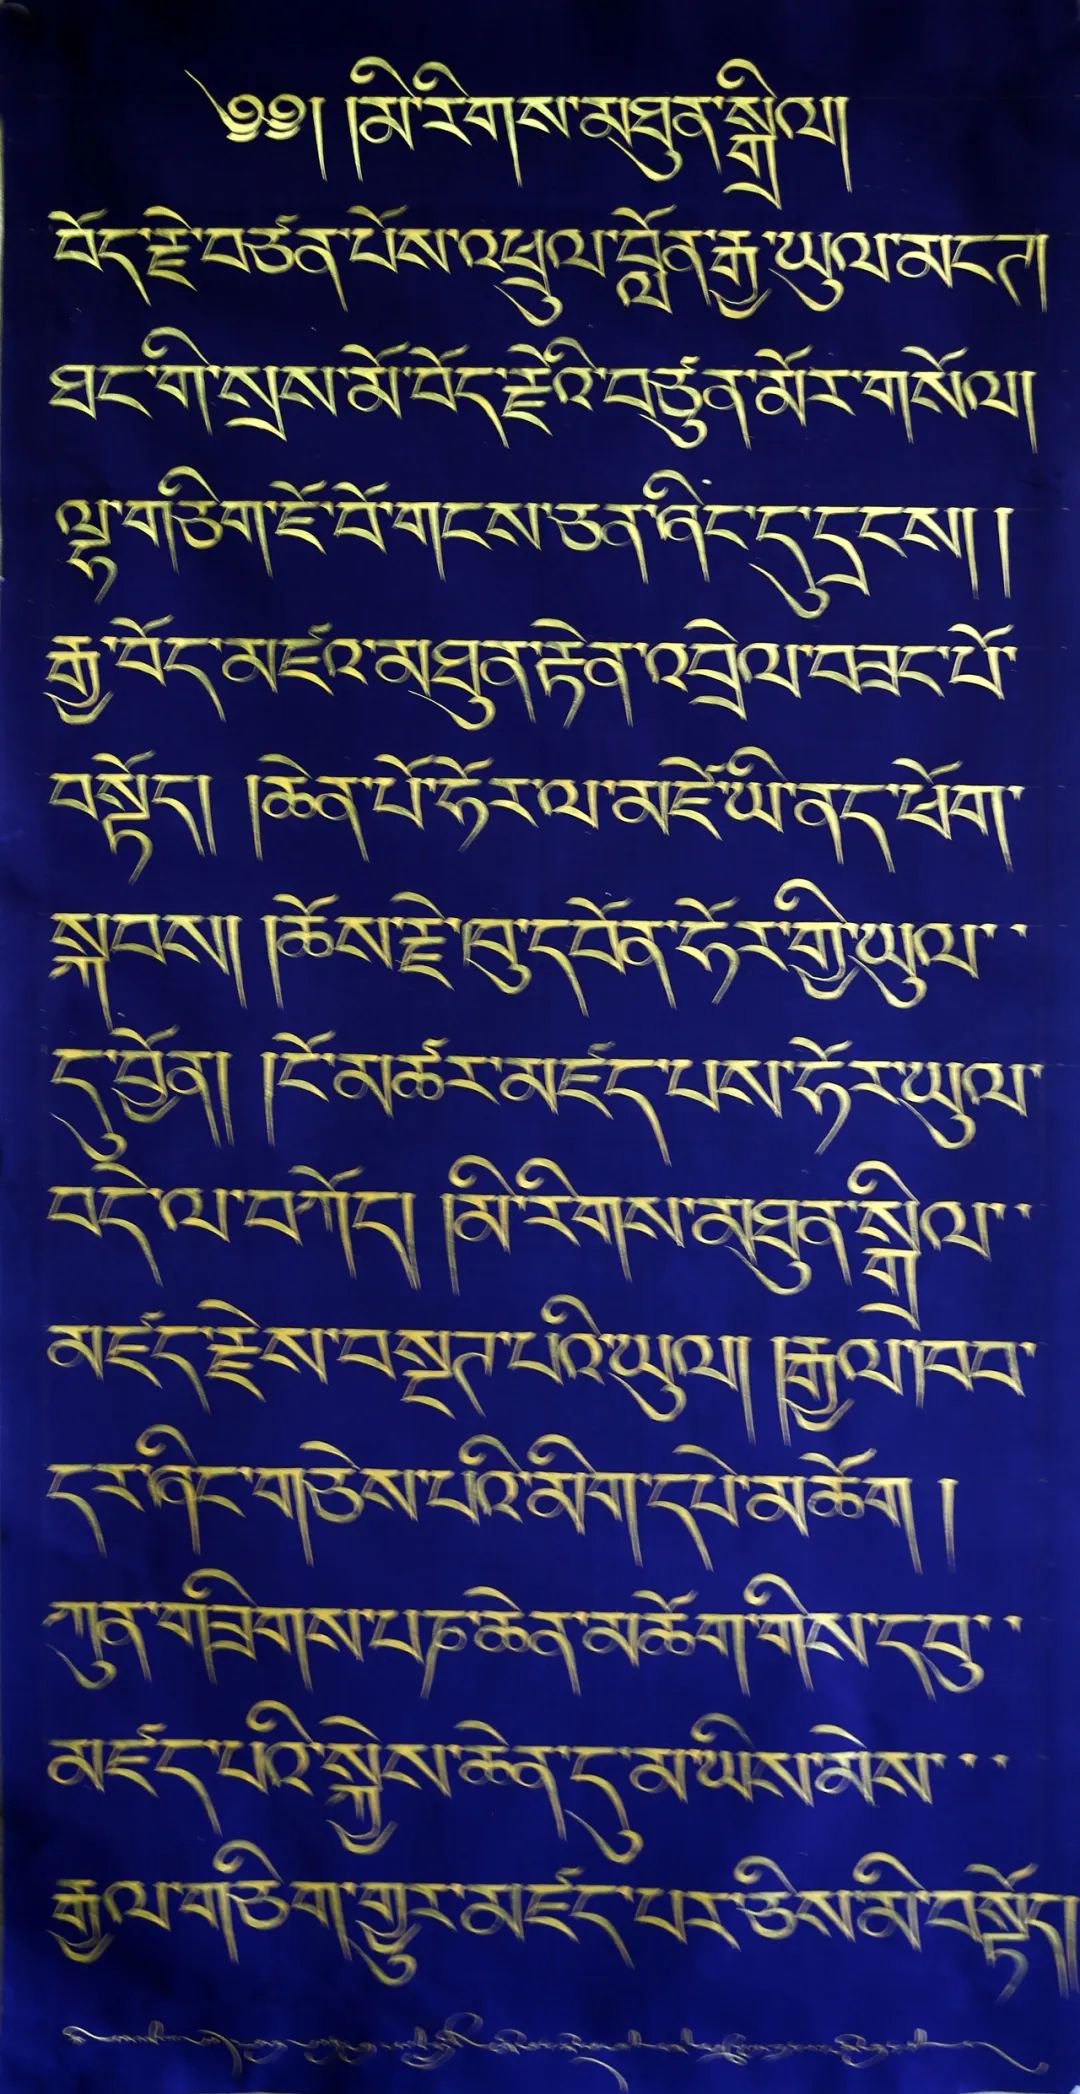 ༄༅། །མི་རིགས་མཐུན་སྒྲིལ།
བོད་རྗེ་བཙན་པོས་འཕྲུལ་བློན་རྒྱ་ཡུལ་མངག།
ཐང་གི་སྲས་མོ་བོད་རྗེའི་བཙུན་མོར་གསོལ།
ལྷ་གཅིག་ཇོ་བོ་གངས་ཅན་ཞིང་དུ་དྲངས།། །
རྒྱ་བོད་མཛའ་མཐུན་རྟེན་འབྲེལ་བཟང་པོ་
བསྟོད། །ཆེན་པོ་ཧོར་ལ་མངོ་ཡི་ནད་ཕོག་
སྐབས།། །ཆོས་རྗེ་ཁུ་དབོན་ཧོར་གྱི་ཡུལ་་
དུ་བྱོན།། །ངོ་མཚར་མཛད་པས་ཧོར་ཡུལ་
བདེ་ལ་བཀོད། །མི་རིགས་མཐུན་སྒྲིལ་་
མཛད་རྗེས་བསྔགས་པའི་ཡུལ།། །རྒྱལ་ཁབ་
དར་ཞིང་གཅེས་པའི་མིག་དཔེ་མཆོག །
ཀུན་གཟིགས་པཎ་ཆེན་མཆོག་གིས་དབུ་་
མཛད་པའི་སྐྱེས་ཆེན་དུ་མ་ཡིས་མེས་་་
རྒྱལ་གཅིག་གྱུར་མཛད་པར་ཅིས་མི་བསྟོད།